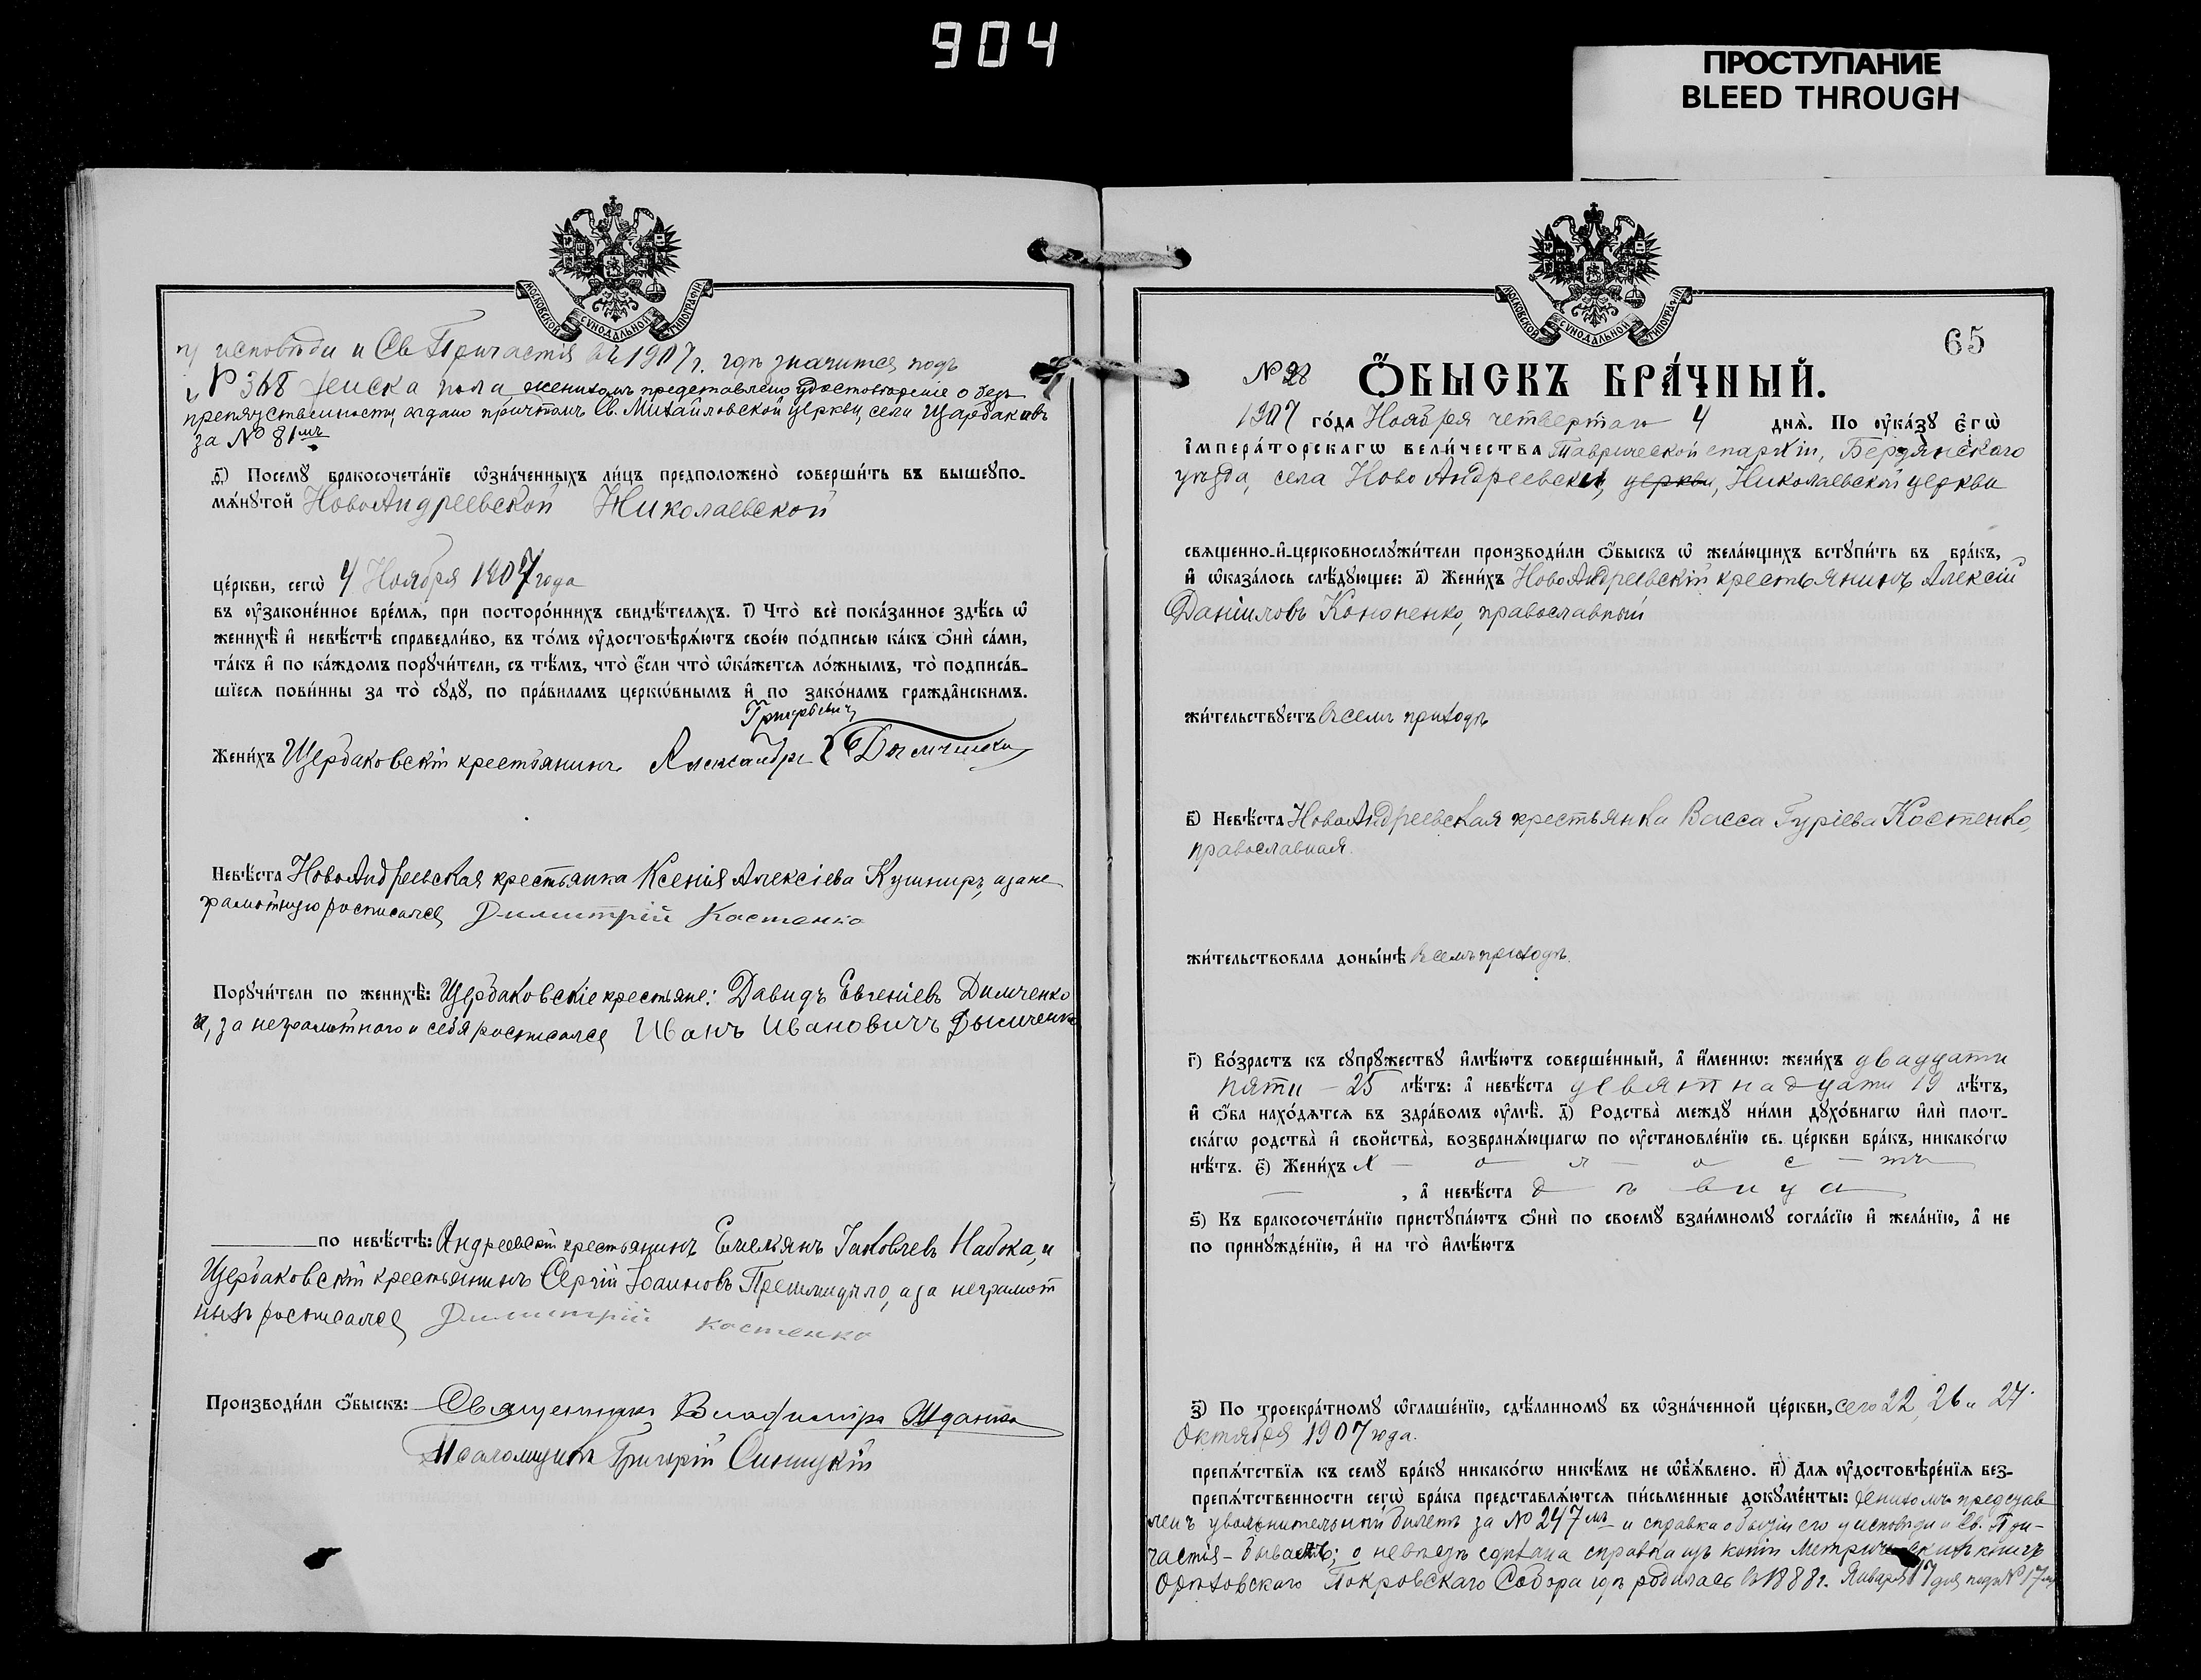 904
ПРОСТУПАНИЕ
BLEED THROUGH
МОСКОВСКОЙ СѴНОДАЛЬНОЙ ТИПОГРАФІИ
исповѣди и Св. Причастія въ 1907 г. гдѣ значится подъ
№ 368 женска пола, женихомъ представлено удостовѣреніе о без
препятственности, выдано причтомъ Св. Михайловской церкви, села Щербаковъ
за № 81мъ
д҃і) Посемꙋ̀ бракосочета́нїе ѡ҆зна́ченныхъ ли́цъ предположено̀ соверши́ть въ вышеꙋпо-
мѧ́нꙋтой НовоАндреевской Николаевской
це́ркви, сегѡ̀ 4 Ноября 1907 года
въ ᲂу҆зако́ненное вре́мѧ, при посторо́ннихъ свидѣ́телѧхъ. і҃) Что̀ всѐ пока́занное здѣ́сь ѡ҆
женихѣ̀ и҆ невѣ́стѣ справедли́во, въ то́мъ ᲂу҆достовѣрѧ́ютъ свое́ю по́дписью ка́къ ѻ҆нѝ са́ми,
та́къ и҆ по ка́ждомъ порꙋчи́тели, съ тѣ́мъ, что̀ є҆́сли что̀ ѡ҆ка́жетсѧ ло́жнымъ, то̀ подписа́в-
шїесѧ пови́нны за то̀ сꙋдꙋ̀, по пра́виламъ церкѡ́внымъ и҆ по зако́намъ гражда́нскимъ.
Григорьевичъ
Жени́хъ Щербаковскій крестьянинъ Александръ Дымченко
Невѣ́ста НовоАндреевская крестьянка Ксенія Алексіева Кушниръ, а за не
грамотную росписался Димитрій Костенко
Порꙋчи́тели по женихѣ̀: Щербаковскіе крестьяне: Давидъ Евгеніевъ Димченко
и, за неграмотного и себя росписался Иванъ Ивановичъ Дымченко
по невѣ́стѣ: Андреевскій крестьянинъ Емельянъ Іаковлевъ Набока, и
Щербаковскій крестьянинъ Сергій Іоанновъ, а за неграмот
ныхъ росписался Димитрій Костенко
Производи́ли ѻ҆́быскъ: Священникъ Владиміръ Жданко
Псаломщикъ Григорій Синицкій
МОСКОВСКОЙ СѴНОДАЛЬНОЙ ТИПОГРАФІИ
65
№ 28 Ѻ҆́БЫСКЪ БРА́ЧНЫЙ.
1907 го́да Ноября четвертаго 4 днѧ̀. По ᲂу҆ка́зꙋ Є҆гѡ̀
І҆мпера́торскагѡ вели́чества Таврической епархіи, Бердянскаго
уѣзда, села Ново Андреевки, церкви, Николаевской церкви
свѧще́нно-и҆-церковнослꙋжи́тели производи́ли ѻ҆́быскъ ѡ҆ жела́ющихъ встꙋпи́ть въ бра́къ,
и҆ ѡ҆каза́лось слѣ́дꙋющее: а҃) Жени́хъ НовоАндреевскій крестьянинъ Алексій
Даніиловъ Кононенко, православный
жи́тельствꙋетъ въ семъ приходѣ
в҃) Невѣ́ста НовоАндреевская крестьянка Васса Гуріева Костенко,
православная.
жи́тельствовала доны́нѣ въ семъ приходѣ.
г҃) Во́зрастъ къ сꙋпрꙋ́жествꙋ и҆мѣ́ютъ соверше́нный, а҆ и҆́меннѡ: жени́хъ двадцати
пяти – 25 лѣ́тъ: а҆ невѣ́ста девятнадцати 19 лѣ́тъ,
и҆ ѻ҆́ба нахо́дѧтсѧ въ здра́вомъ ᲂу҆мѣ̀. д҃) Родства̀ междꙋ̀ ни́ми дꙋхо́внагѡ и҆лѝ плот-
ска́гѡ родства̀ и҆ сво́йства, возбранѧ́ющагѡ по ᲂу҆становле́нїю св. це́ркви бра́къ, никако́гѡ
нѣ́тъ. є҃) Жени́хъ х – о – л – о – с – тъ
, а҆ невѣ́ста д ѣ в и ц а
ѕ҃) Къ бракосочета́нїю пристꙋпа́ютъ ѻ҆нѝ по своемꙋ̀ взаи́мномꙋ согла́сїю и҆ жела́нїю, а҆ не
по принꙋжде́нїю, и҆ на то̀ и҆мѣ́ютъ
з҃) По троекра́тномꙋ ѡ҆глаше́нїю, сдѣ́ланномꙋ въ ѡ҆зна́ченной це́ркви, сего 22, 26 и 27
Октября 1907 года.
препѧ́тствїѧ къ семꙋ̀ бра́кꙋ никако́гѡ никѣ́мъ не ѡ҆б̾ѧ́влено. и҃) Длѧ ᲂу҆достовѣре́нїѧ без-
препѧ́тственности сегѡ̀ бра́ка представлѧ́ютсѧ пи́сьменные докꙋме́нты: женихомъ представ
ленъ увольнительный билетъ за № 247мъ и справка о бытіи его у исповѣди и Св. При-
частія – бываетъ; о невѣстѣ сдѣлана справка изъ копіи метрическихъ книгъ
Орѣховскаго Покровскаго Собора гдѣ родилась въ 1888 г. Января 17 дня подъ № 17мъ